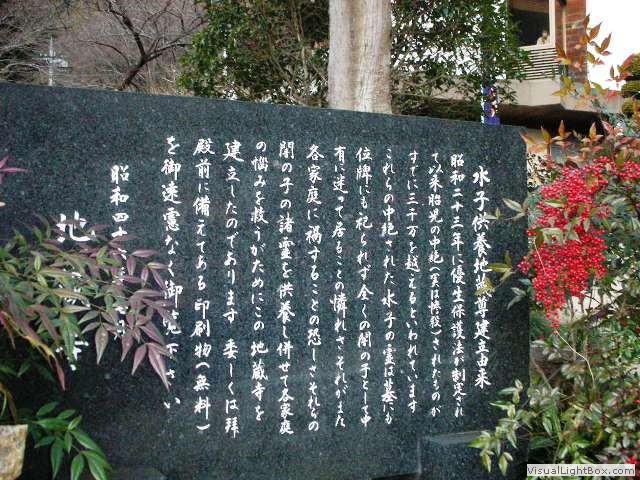 水子供養地蔵尊建立由来
昭和二十三年に優生保護法が制定され
て以来胎児の中絶(実は惨殺)されたものが
すでに三千万を越えるといわれています
これらの中絶された水子の霊は墓にも
位牌にも祀られず全くの闇の子として中
有に迷って居ることの憐れさ、それがまた
各家庭に禍することの恐しさ、それらの
闇の子の諸霊を供養し併せて各家庭
の悩みを救うがためにこの地蔵寺を
建立したのであります 委しくは拝
殿前に備えてある印刷物(無料)
を御遠慮なく御覧下さい
昭和四十
VisualLightBox.com